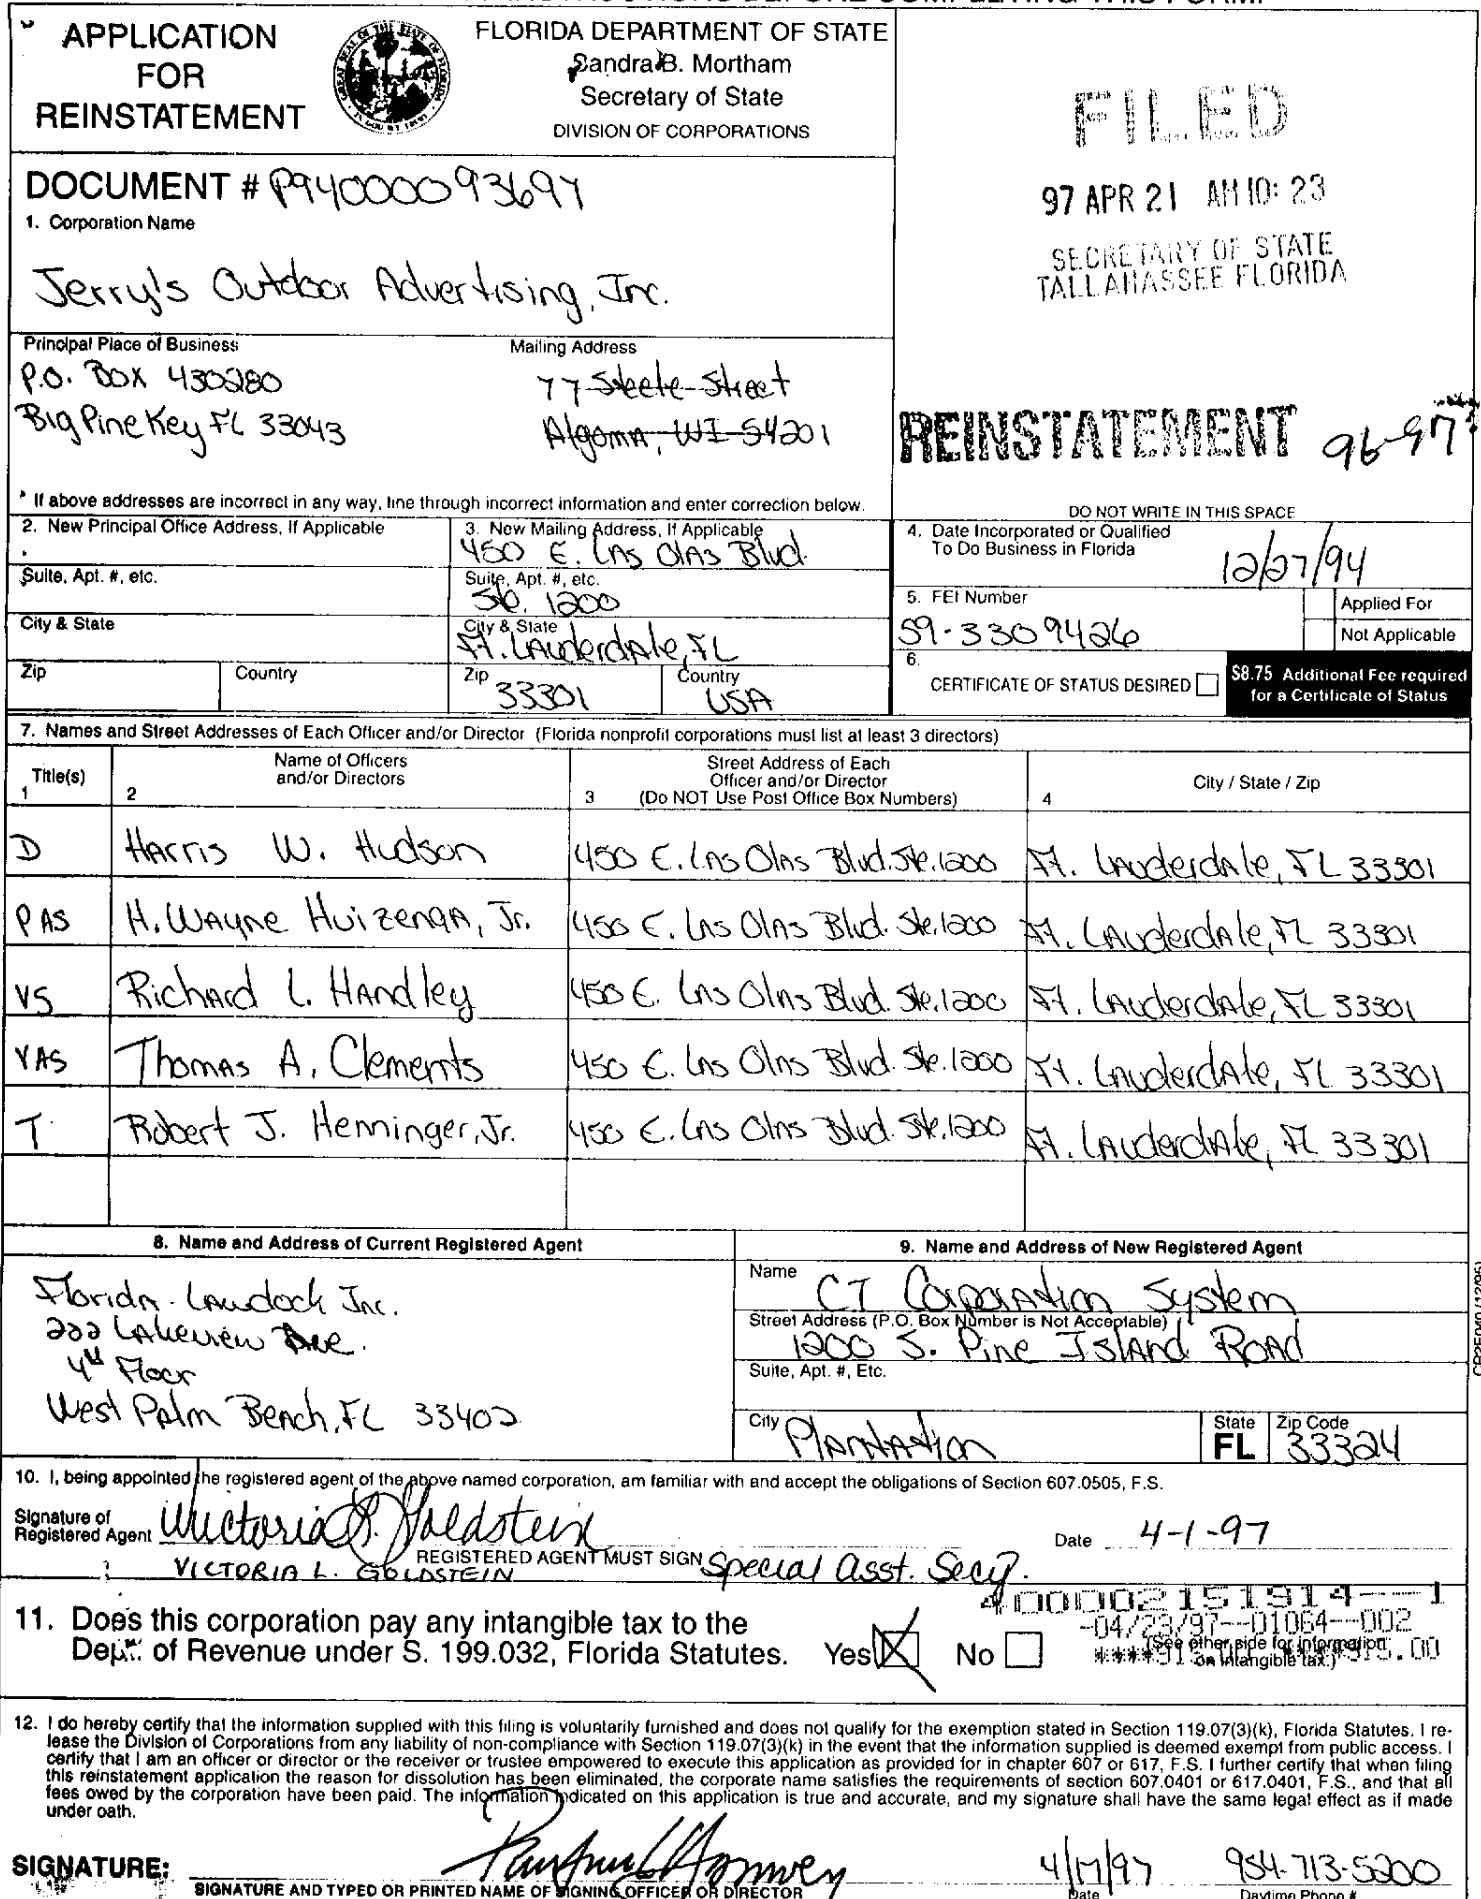 APPLICATION
FOR
REINSTATEMENT
FLORIDA DEPARTMENT OF STATE
Sandra B. Mortham
Secretary of State
DIVISION OF CORPORATIONS
FILED
97 APR 21 AM 10: 23
SECRETARY OF STATE
TALLAHASSEE FLORIDA
DOCUMENT # P94000093697
1. Corporation Name
Jerry's Outdoor Advertising, Inc.
Principal Place of Business
P.O. Box 430280
Big Pine Key FL 33043
Mailing Address
77 Steele Street
Algoma, WI 54201
REINSTATEMENT 96-97
* If above addresses are incorrect in any way, line through incorrect information and enter correction below.
DO NOT WRITE IN THIS SPACE
2. New Principal Office Address, If Applicable
Suite, Apt. #, etc.
City & State
Zip
Country
3. New Mailing Address, If Applicable
450 E. Las Olas Blvd.
Suite, Apt. #, etc.
Ste. 1200
City & State
Ft. Lauderdale, FL
Zip
33301
Country
USA
4. Date Incorporated or Qualified
To Do Business in Florida
12/27/94
5. FEI Number
59-3309426
Applied For
Not Applicable
6.
CERTIFICATE OF STATUS DESIRED
$8.75 Additional Fee required
for a Certificate of Status
7. Names and Street Addresses of Each Officer and/or Director (Florida nonprofit corporations must list at least 3 directors)
Title(s)
1
Name of Officers
and/or Directors
2
Street Address of Each
Officer and/or Director
3 (Do NOT Use Post Office Box Numbers)
City / State / Zip
4
D Harris W. Hudson 450 E. Las Olas Blvd. Ste. 1200 Ft. Lauderdale, FL 33301
P AS H. Wayne Huizenga, Jr. 450 E. Las Olas Blvd. Ste. 1200 Ft. Lauderdale, FL 33301
VS Richard L. Handley 450 E. Las Olas Blvd. Ste. 1200 Ft. Lauderdale, FL 33301
VAS Thomas A. Clements 450 E. Las Olas Blvd. Ste. 1200 Ft. Lauderdale, FL 33301
T Robert J. Henninger, Jr. 450 E. Las Olas Blvd. Ste. 1200 Ft. Lauderdale, FL 33301
8. Name and Address of Current Registered Agent
Florida Lawdock Inc.
222 Lakeview Ave.
4th Floor
West Palm Beach, FL 33402
9. Name and Address of New Registered Agent
Name
CT Corporation System
Street Address (P.O. Box Number is Not Acceptable)
1200 S. Pine Island Road
Suite, Apt. #, Etc.
City
Plantation
State
FL
Zip Code
33324
10. I, being appointed the registered agent of the above named corporation, am familiar with and accept the obligations of Section 607.0505, F.S.
Signature of
Registered Agent Victoria L. Goldstein
Date 4-1-97
REGISTERED AGENT MUST SIGN Special Asst. Secy.
VICTORIA L. GOLDSTEIN
400002151914--1
-04/23/97--01064--002
11. Does this corporation pay any intangible tax to the
Dept. of Revenue under S. 199.032, Florida Statutes. Yes No
(See other side for information
on intangible tax.)
12. I do hereby certify that the information supplied with this filing is voluntarily furnished and does not qualify for the exemption stated in Section 119.07(3)(k), Florida Statutes. I re-
lease the Division of Corporations from any liability of non-compliance with Section 119.07(3)(k) in the event that the information supplied is deemed exempt from public access. I
certify that I am an officer or director or the receiver or trustee empowered to execute this application as provided for in chapter 607 or 617, F.S. I further certify that when filing
this reinstatement application the reason for dissolution has been eliminated, the corporate name satisfies the requirements of section 607.0401 or 617.0401, F.S., and that all
fees owed by the corporation have been paid. The information indicated on this application is true and accurate, and my signature shall have the same legal effect as if made
under oath.
SIGNATURE:
4/17/97 954-713-5200
SIGNATURE AND TYPED OR PRINTED NAME OF SIGNING OFFICER OR DIRECTOR
Date
Daytime Phone #